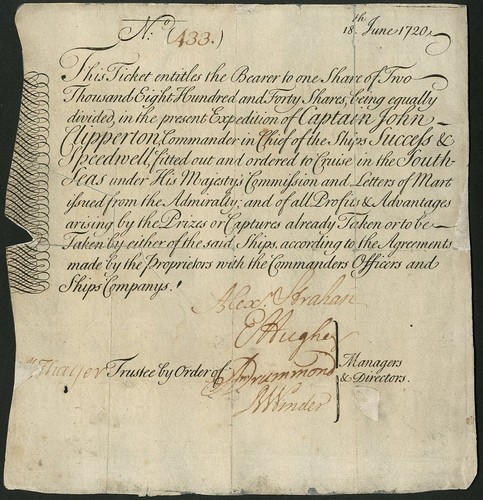 N:o (433.)
18th June 1720
This Ticket entitles the Bearer to one Share of Two
Thousand Eight Hundred and Forty Shares, being equally
divided, in the present Expedition of Captain John
Clipperton, Commander in Chief of the Ships Success &
Speedwell, fitted out and ordered to Cruise in the South-
Seas under His Majestys Commission and Letters of Mart
issued from the Admiralty; and of all Profits & Advantages
arising by the Prizes or Captures already Taken or to be
Taken by either of the said Ships, according to the Agreements
made by the Proprietors with the Commanders Officers and
Ships Companys.
Alexr. Strahan
E Hughes
Thayer Trustee by Order of Drummond Managers
& Directors.
Winder